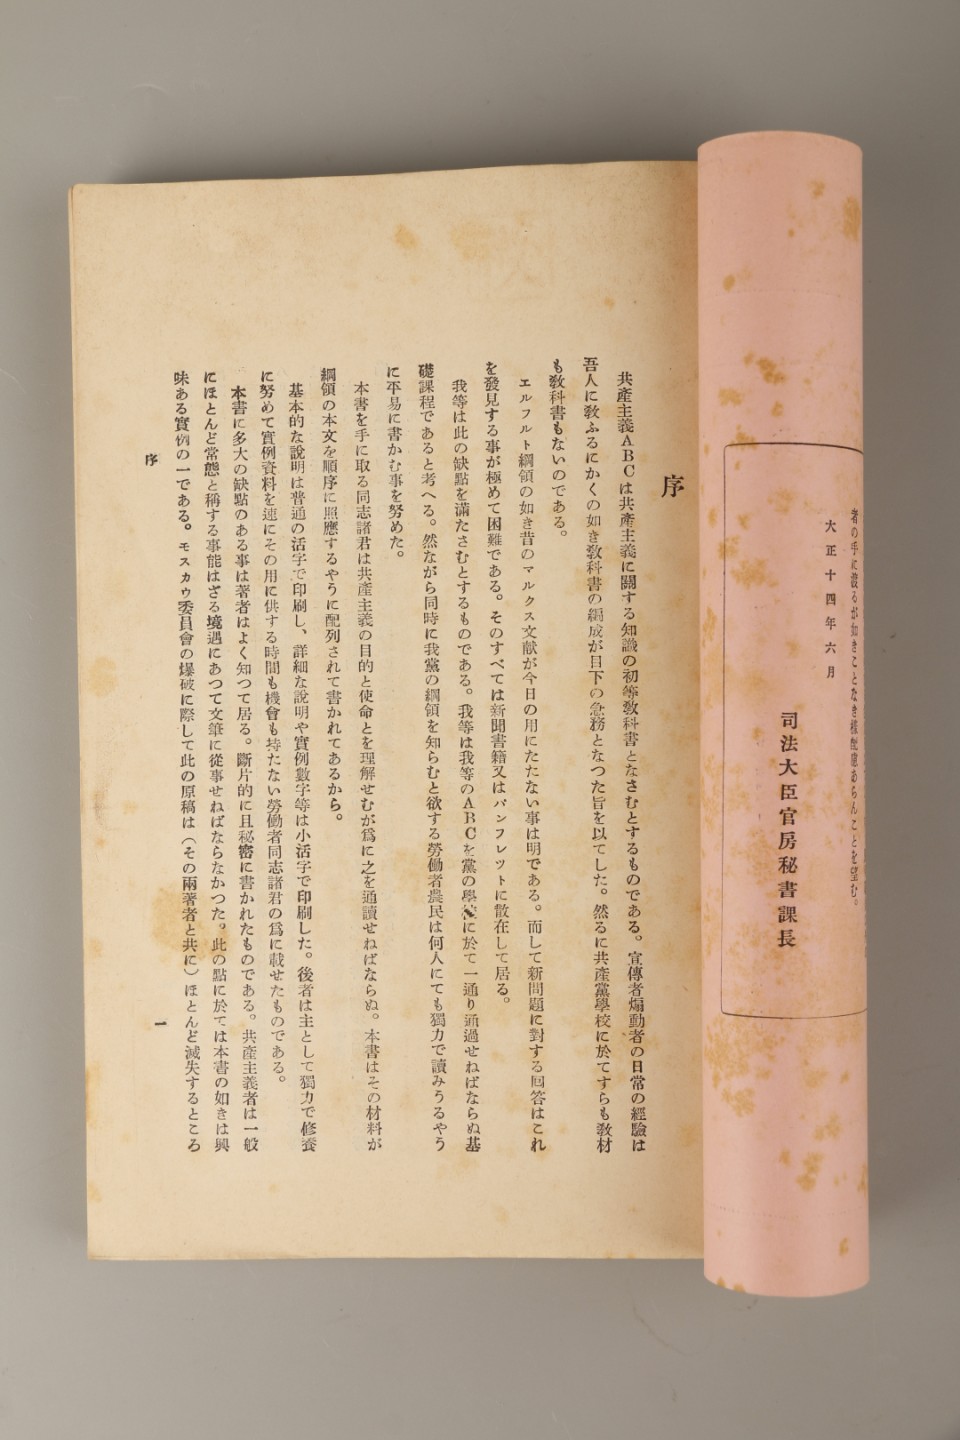 者の手に渡るが如きことなき樣配慮あらんことを望む。
大正十四年六月
司法大臣官房秘書課長
序
共產主義ABCは共產主義に關する知識の初等敎科書となさむとするものである。宣傳者煽動者の日常の經驗は
吾人に敎ふるにかくの如き敎科書の編成が目下の急務となつた旨を以てした。然るに共產黨學校に於てすらも敎材
も敎科書もないのである。
エルフルト綱領の如き昔のマルクス文献が今日の用にたたない事は明である。而して新問題に對する回答はこれ
を發見する事が極めて困難である。そのすべては新聞書籍又はパンフレツトに散在して居る。
我等は此の缺點を滿たさむとするものである。我等は我等のABCを黨の學校に於て一通り通過せねばならぬ基
礎課程であると考へる。然ながら同時に我黨の綱領を知らむと欲する勞働者農民は何人にても獨力で讀みうるやう
に平易に書かむ事を努めた。
本書を手に取る同志諸君は共產主義の目的と使命とを理解せむが爲に之を通讀せねばならぬ。本書はその材料が
綱領の本文を順序に照應するやうに配列されて書かれてあるから。
基本的な說明は普通の活字で印刷し、詳細な說明や實例數字等は小活字で印刷した。後者は主として獨力で修養
に努めて實例資料を速にその用に供する時間も機會も持たない勞働者同志諸君の爲に載せたものである。
本書に多大の缺點のある事は著者はよく知つて居る。斷片的に且秘密に書かれたものである。共產主義者は一般
にほとんど常態と稱する事能はざる境遇にあつて文筆に從事せねばならなかつた。此の點に於ては本書の如きは興
味ある實例の一である。モスカウ委員會の爆破に際して此の原稿は（その兩著者と共に）ほとんど滅失するところ
序
一